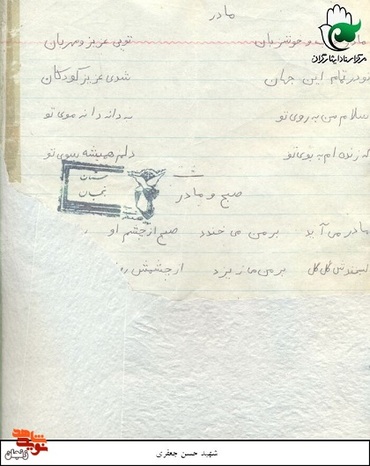 مادر
مرکز اسناد ایثارگران
مادر و خوشزبان تویی عزیز و مهربان
تو در تمام این جهان شدی عزیز کودکان
سلام من به روی تو به دانه دانه موی تو
که زنده ام به بوی تو دلم همیشه سوی تو
صبح و مادر
مادر می آید بر من می خندد صبح از چشم او
گل گل بر من می ریزد از چشمش
نوید شاهد
زنجان
شهید حسن جعفری